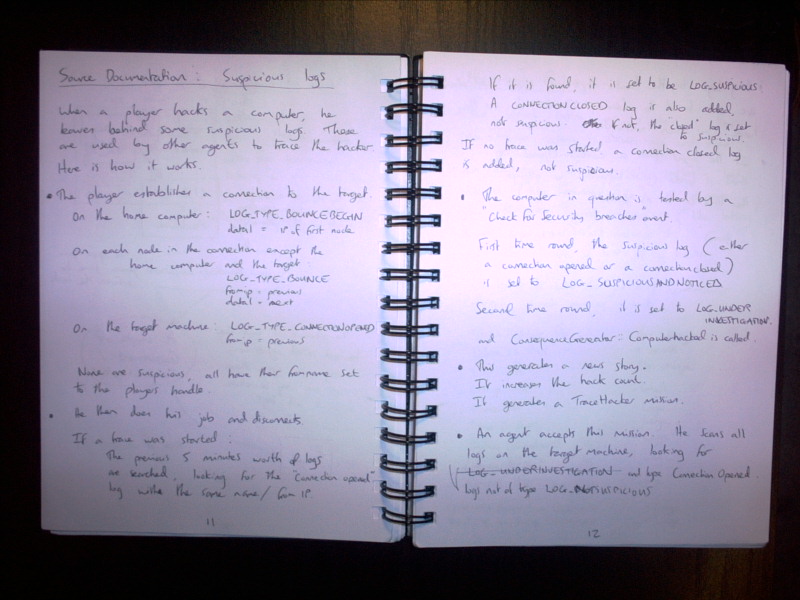 Source Documentation : Suspicious logs
When a player hacks a computer, he
leaves behind some suspicious logs. These
are used by other agents to trace the hacker.
Here is how it works.
• The player establishes a connection to the target.
On the home computer : LOG_TYPE_BOUNCEBEGIN
data1 = IP of first node
On each node in the connection except the
home computer and the target :
LOG_TYPE_BOUNCE
fromip = previous
data1 = next
On the target machine : LOG_TYPE_CONNECTIONOPENED
fromip = previous
None are suspicious, all have their fromname set
to the players handle.
• He then does his job and disconnects.
If a trace was started :
The previous 5 minutes worth of logs
are searched, looking for the "Connection opened"
log with the same name / from IP.
11
If it is found, it is set to be LOG_SUSPICIOUS.
A CONNECTIONCLOSED log is also added,
not suspicious. If not, the "closed" log is set
to suspicious.
If no trace was started a connection closed log
is added, not suspicious.
• The computer in question is tested by a
"Check for Security breaches" event.
First time round, the suspicious log ( either
a connection opened or a connection closed )
is set to LOG_SUSPICIOUSANDNOTICED
Second time round, it is set to LOG_UNDER
INVESTIGATION.
and ConsequenceGenerator::ComputerHacked is called.
• This generates a news story.
It increases the hack count.
It generates a TraceHacker mission.
• An agent accepts this mission. He scans all
logs on the target machine, looking for
LOG_UNDERINVESTIGATION and type Connection Opened.
logs not of type LOG_NOTSUSPICIOUS
12